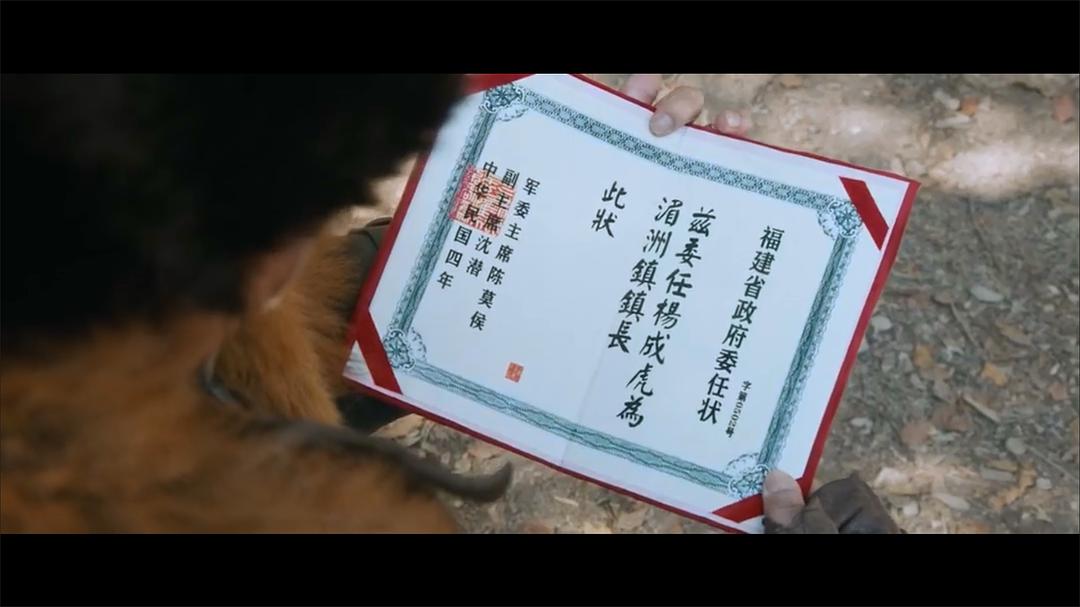 福建省政府委任状
字第0502号
兹委任楊成虎為
湄洲鎮鎮長
此状
军委主席陈莫侯
副主席沈潜
中华民国四年